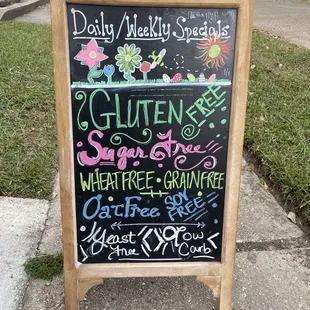 Daily/Weekly Specials
GLUTEN FREE
Sugar Free
WHEAT FREE · GRAIN FREE
Oat Free SOY FREE
Yeast Free Low Carb